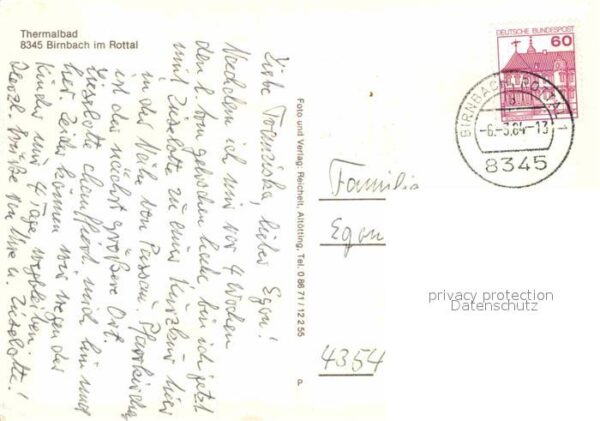 Thermalbad
8345 Birnbach im Rottal
Liebe Franziska, lieber Egon!
Nachdem ich mir vor 4 Wochen
den l. gebrochen habe bin ich jetzt
mit Liselotte zu einer Kurzkur hier
in der Nähe von Passau. Pfarrkirchen
ist der nächst größere Ort.
Liselotte chauffiert mich hin und
her. Leider können wir wegen der
Kinder nur 4 Tage wegbleiben.
Herzl. Grüße von u. Liselotte!
Foto und Verlag: Reichelt, Altötting, Tel. 0 86 71 / 12 2 55
a
DEUTSCHE BUNDESPOST
60
BIRNBACH, ROTTAL 1
-6.-3.84-13
8345
Familie
Egon
4354
privacy protection
Datenschutz